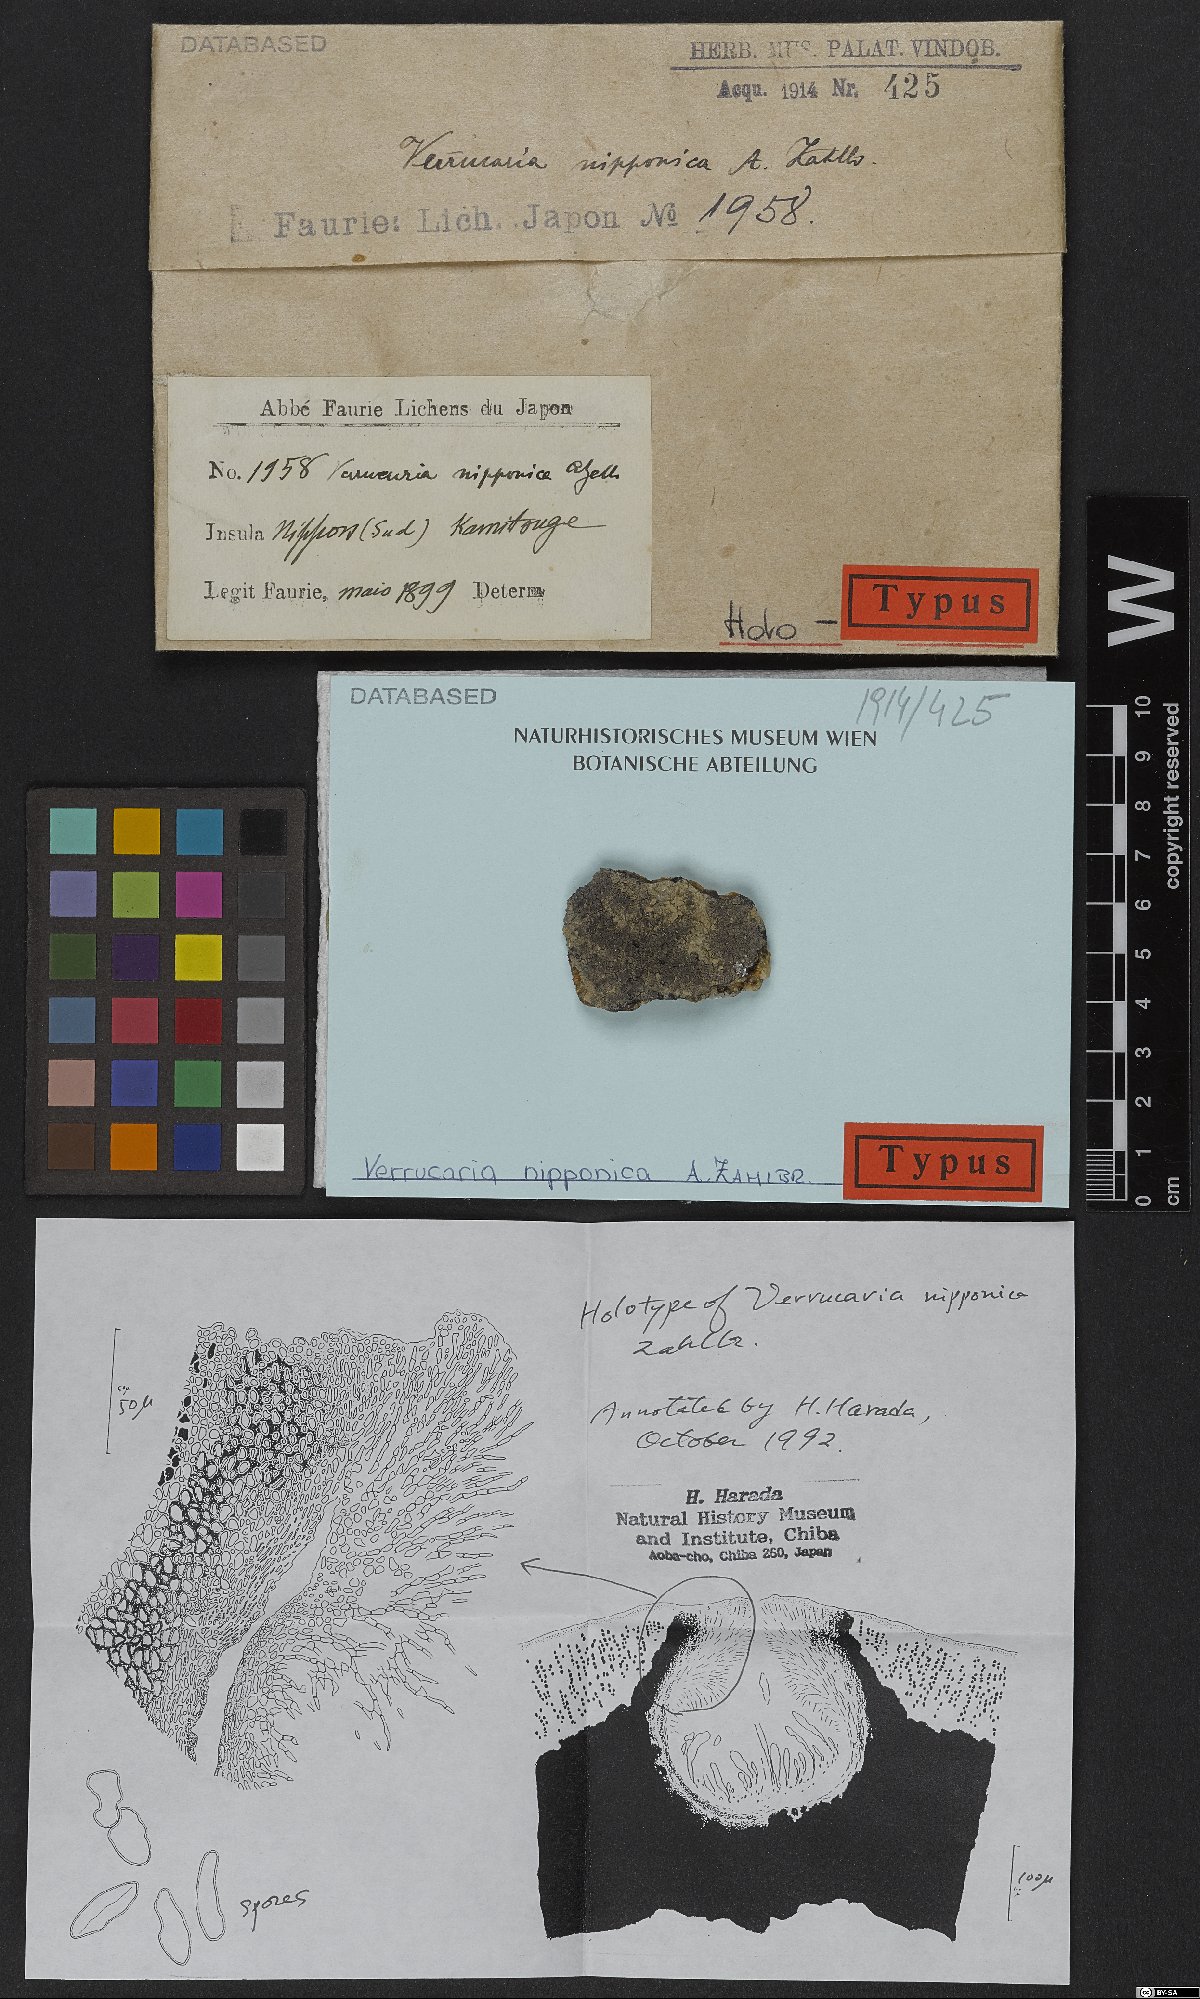 DATABASED
HERB. MUS. PALAT. VINDOB.
Acqu. 1914 Nr. 425
Verrucaria nipponica A. Zahlb.
Faurie: Lich. Japon № 1958.
Abbé Faurie Lichens du Japon
No. 1958 Verrucaria nipponica
Insula Nippon (Sud) Kamitouge
Legit Faurie, maio 1899 Determ
Holo - Typus
DATABASED
1914/425
NATURHISTORISCHES MUSEUM WIEN
BOTANISCHE ABTEILUNG
Verrucaria nipponica A. ZAHLBR.
Typus
W
0 1 2 3 4 5 6 7 8 9 10
cm
copyright reserved
Holotype of Verrucaria nipponica
Zahlbr.
Annotated by H. Harada,
October 1992.
H. Harada
Natural History Museum
and Institute, Chiba
Aoba-cho, Chiba 260, Japan
50 µ
100 µ
spores
cc BY-SA